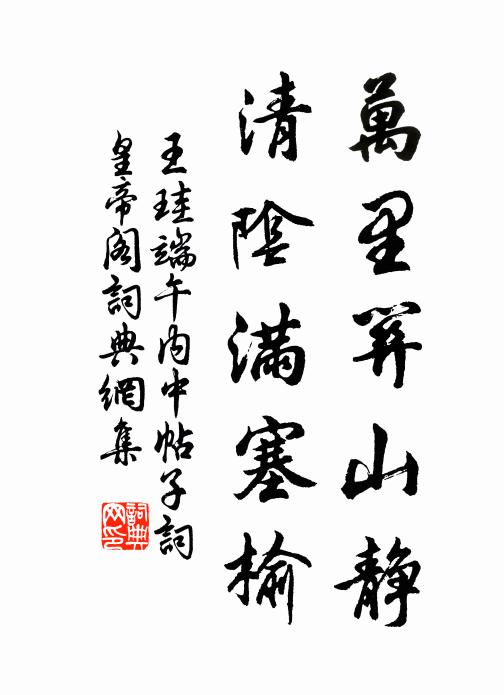 萬里關山静
清陰滿塞榆
王珪端午内中帖子詞
皇帝阁詞典網集
詞典
网印